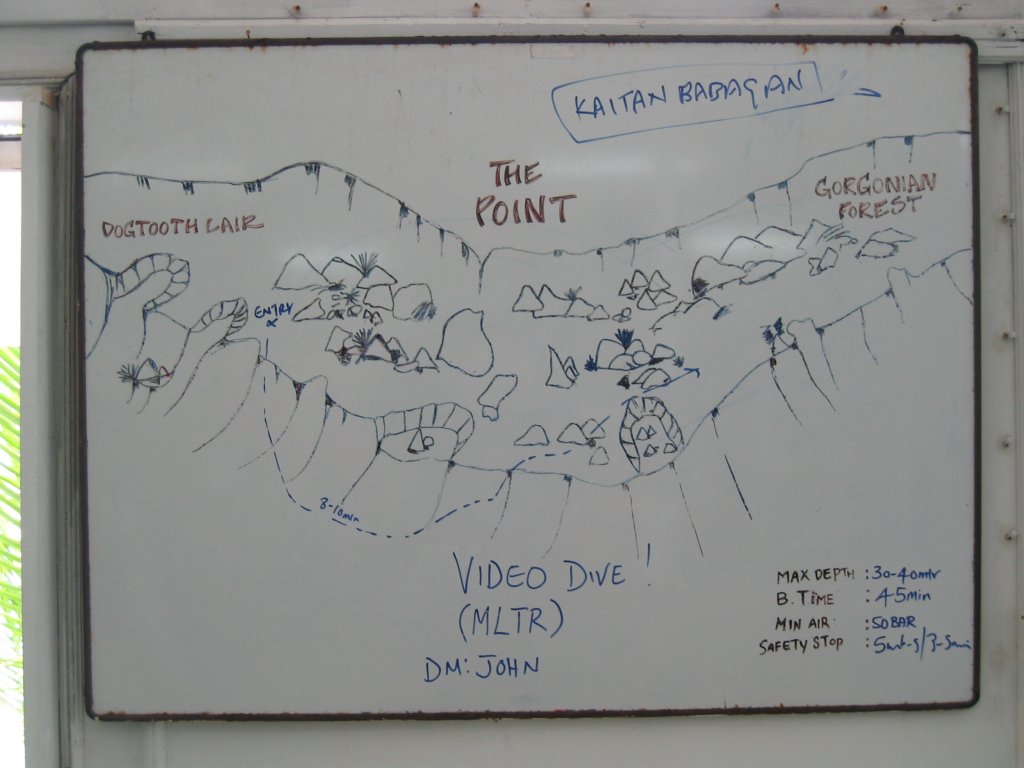 KAITAN BABAGAN
THE
POINT
GORGONIAN
FOREST
DOGTOOTH LAIR
ENTRY
8-10min
VIDEO DIVE !
(MLTR)
DM: JOHN
MAX DEPTH : 30-40mtr
B. TIME : 45min
MIN AIR : 50 BAR
SAFETY STOP :